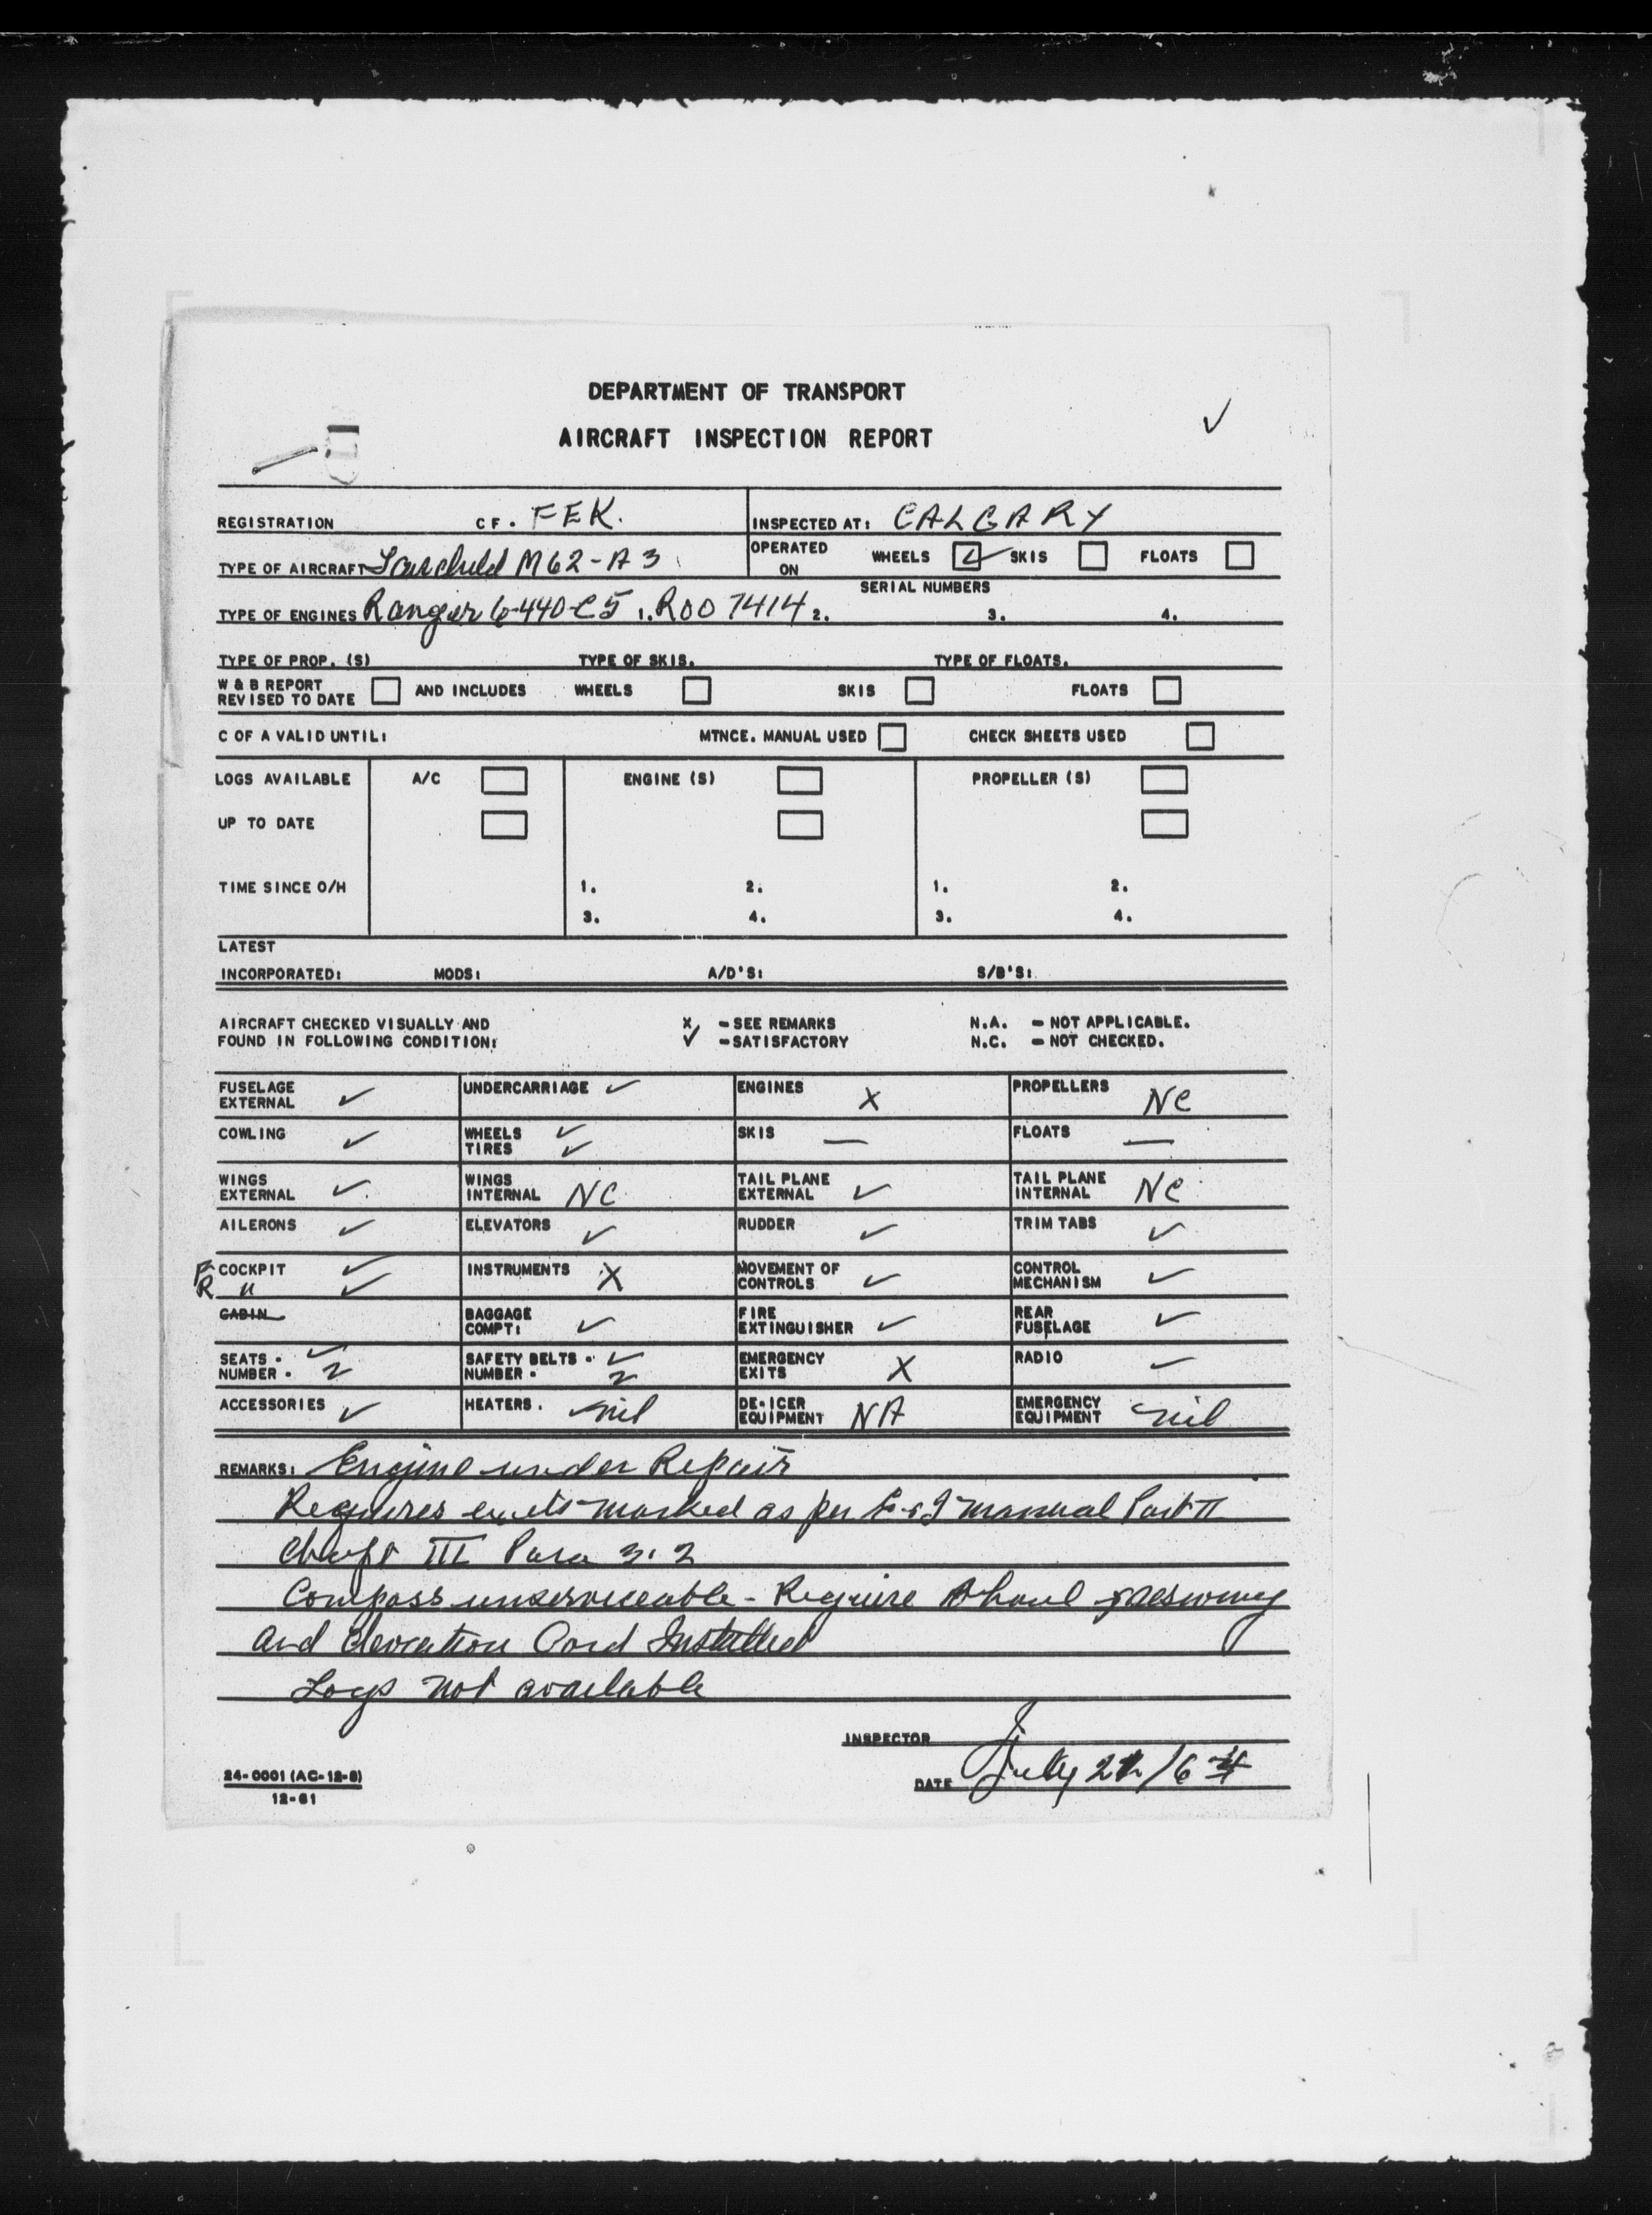 DEPARTMENT OF TRANSPORT
AIRCRAFT INSPECTION REPORT
REGISTRATION CF. FEK. INSPECTED AT: CALGARY
TYPE OF AIRCRAFT Fairchild M62-A3 OPERATED ON WHEELS ✓ SKIS FLOATS
SERIAL NUMBERS
TYPE OF ENGINES Ranger 6-440-C5 1. R00 7414 2. 3. 4.
TYPE OF PROP. (S) TYPE OF SKIS. TYPE OF FLOATS.
W & B REPORT
REVISED TO DATE AND INCLUDES WHEELS SKIS FLOATS
C OF A VALID UNTIL: MTNCE. MANUAL USED CHECK SHEETS USED
LOGS AVAILABLE A/C ENGINE (S) PROPELLER (S)
UP TO DATE
TIME SINCE O/H 1. 2. 1. 2.
3. 4. 3. 4.
LATEST
INCORPORATED: MODS: A/D'S: S/B'S:
AIRCRAFT CHECKED VISUALLY AND X - SEE REMARKS N.A. - NOT APPLICABLE.
FOUND IN FOLLOWING CONDITION: ✓ - SATISFACTORY N.C. - NOT CHECKED.
FUSELAGE EXTERNAL ✓ UNDERCARRIAGE ✓ ENGINES X PROPELLERS NC
COWLING ✓ WHEELS ✓ TIRES ✓ SKIS — FLOATS —
WINGS EXTERNAL ✓ WINGS INTERNAL NC TAIL PLANE EXTERNAL ✓ TAIL PLANE INTERNAL NC
AILERONS ✓ ELEVATORS ✓ RUDDER ✓ TRIM TABS ✓
F COCKPIT ✓ R " ✓ INSTRUMENTS X MOVEMENT OF CONTROLS ✓ CONTROL MECHANISM ✓
CABIN BAGGAGE COMPT: ✓ FIRE EXTINGUISHER ✓ REAR FUSELAGE ✓
SEATS - ✓ NUMBER - 2 SAFETY BELTS - ✓ NUMBER - 2 EMERGENCY EXITS X RADIO ✓
ACCESSORIES ✓ HEATERS. nil DE-ICER EQUIPMENT NA EMERGENCY EQUIPMENT nil
REMARKS: Engine under Repair
Requires exits marked as per E & I manual Part II
Chapt III Para 3.2
Compass unserviceable - Require &
and Card Installed
Logs not available
INSPECTOR
DATE July /64
24-0001 (AC-12-8)
12-61